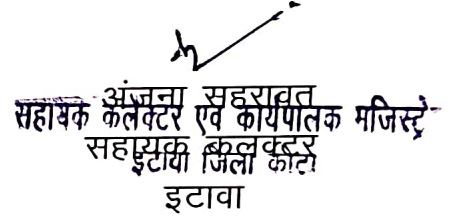 अंजना सहरावत
सहायक कलेक्टर एवं कार्यपालक मजिस्ट्रे
सहायक कलक्टर
इटावा जिला कोटा
इटावा